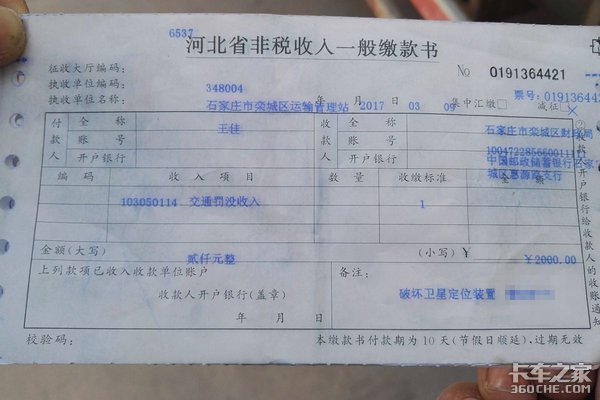 6537
河北省非税收入一般缴款书
征收大厅编码：
No 0191364421
执收单位编码： 348004
票号：0191364421
执收单位名称： 石家庄市栾城区运输管理站 2017年 03月 09日 集中汇缴□ 减征□
付款人 全称 王佳 收款人 全称 石家庄市栾城区财政局
账号 账号 100472285660011111
开户银行 开户银行 中国邮政储蓄银行
城区惠源路支行
编码 收入项目 数量 收缴标准 金额
103050114 交通罚没收入 1
金额(大写) 贰仟元整 (小写)￥ ￥2000.00
上列款项已收入收款单位账户 备注：
收款人开户银行(盖章) 破坏卫星定位装置
年 月 日
校验码： 本缴款书付款期为10天(节假日顺延),过期无效
开户银行给收款人的收账通知
卡车之家
360che.com